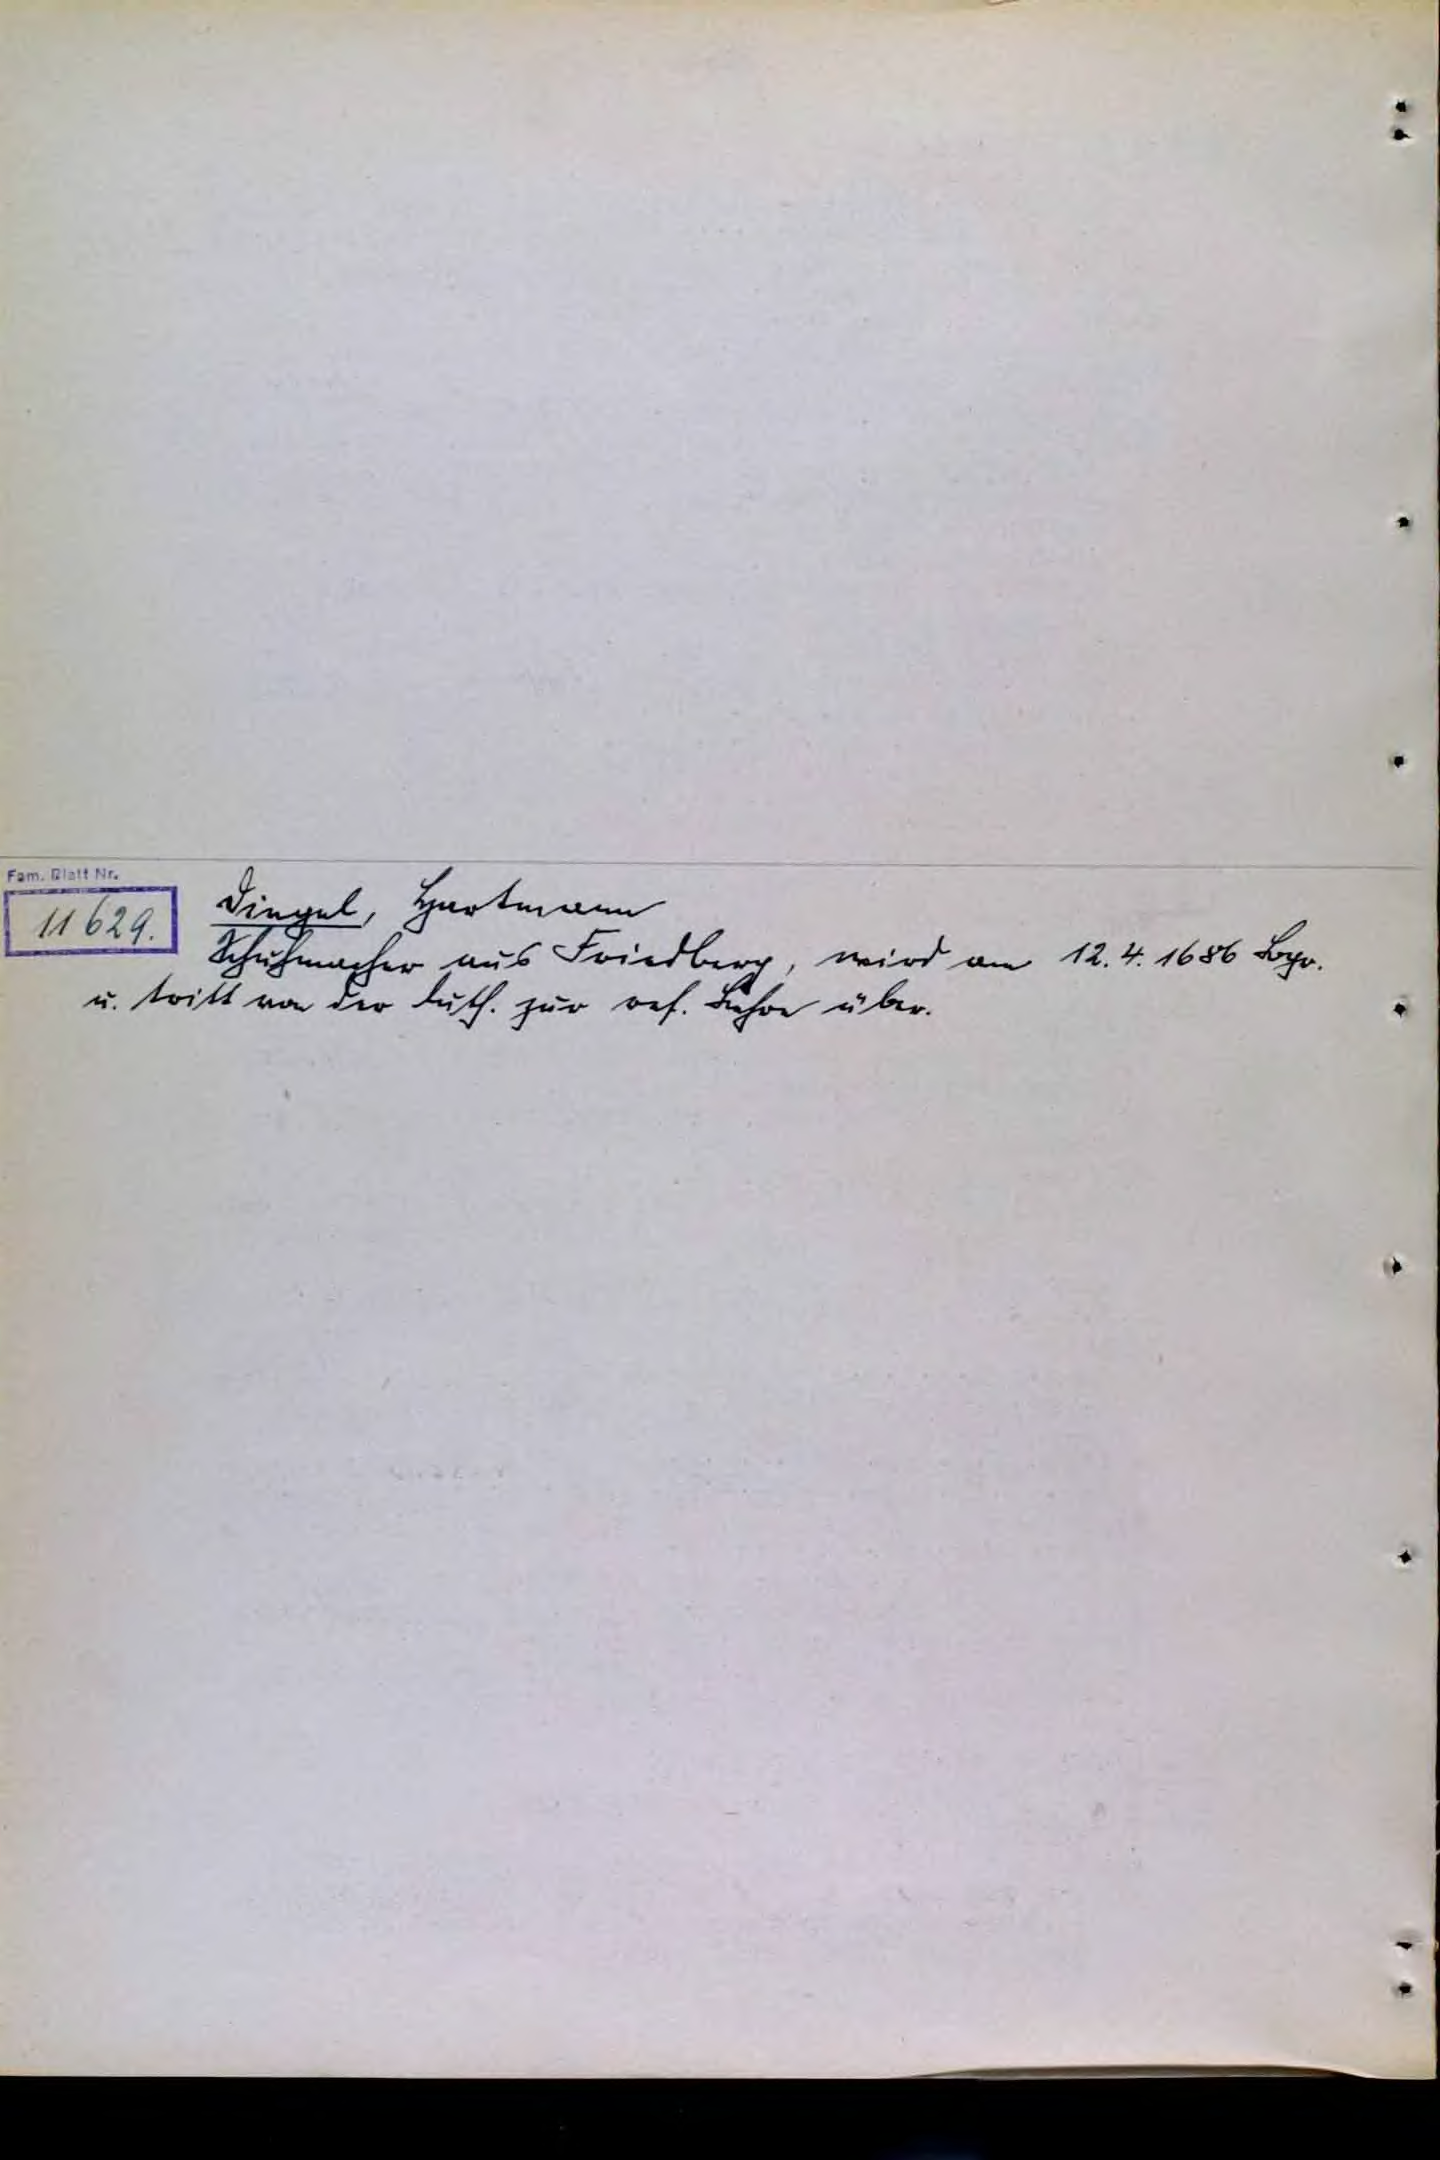 Fam. Blatt Nr.
11629.
Dingel, Hartmann
Schuhmacher aus Friedberg, wird am 12.4.1686 Bgr.
u. tritt von der luth. zur ref. Lehre über.